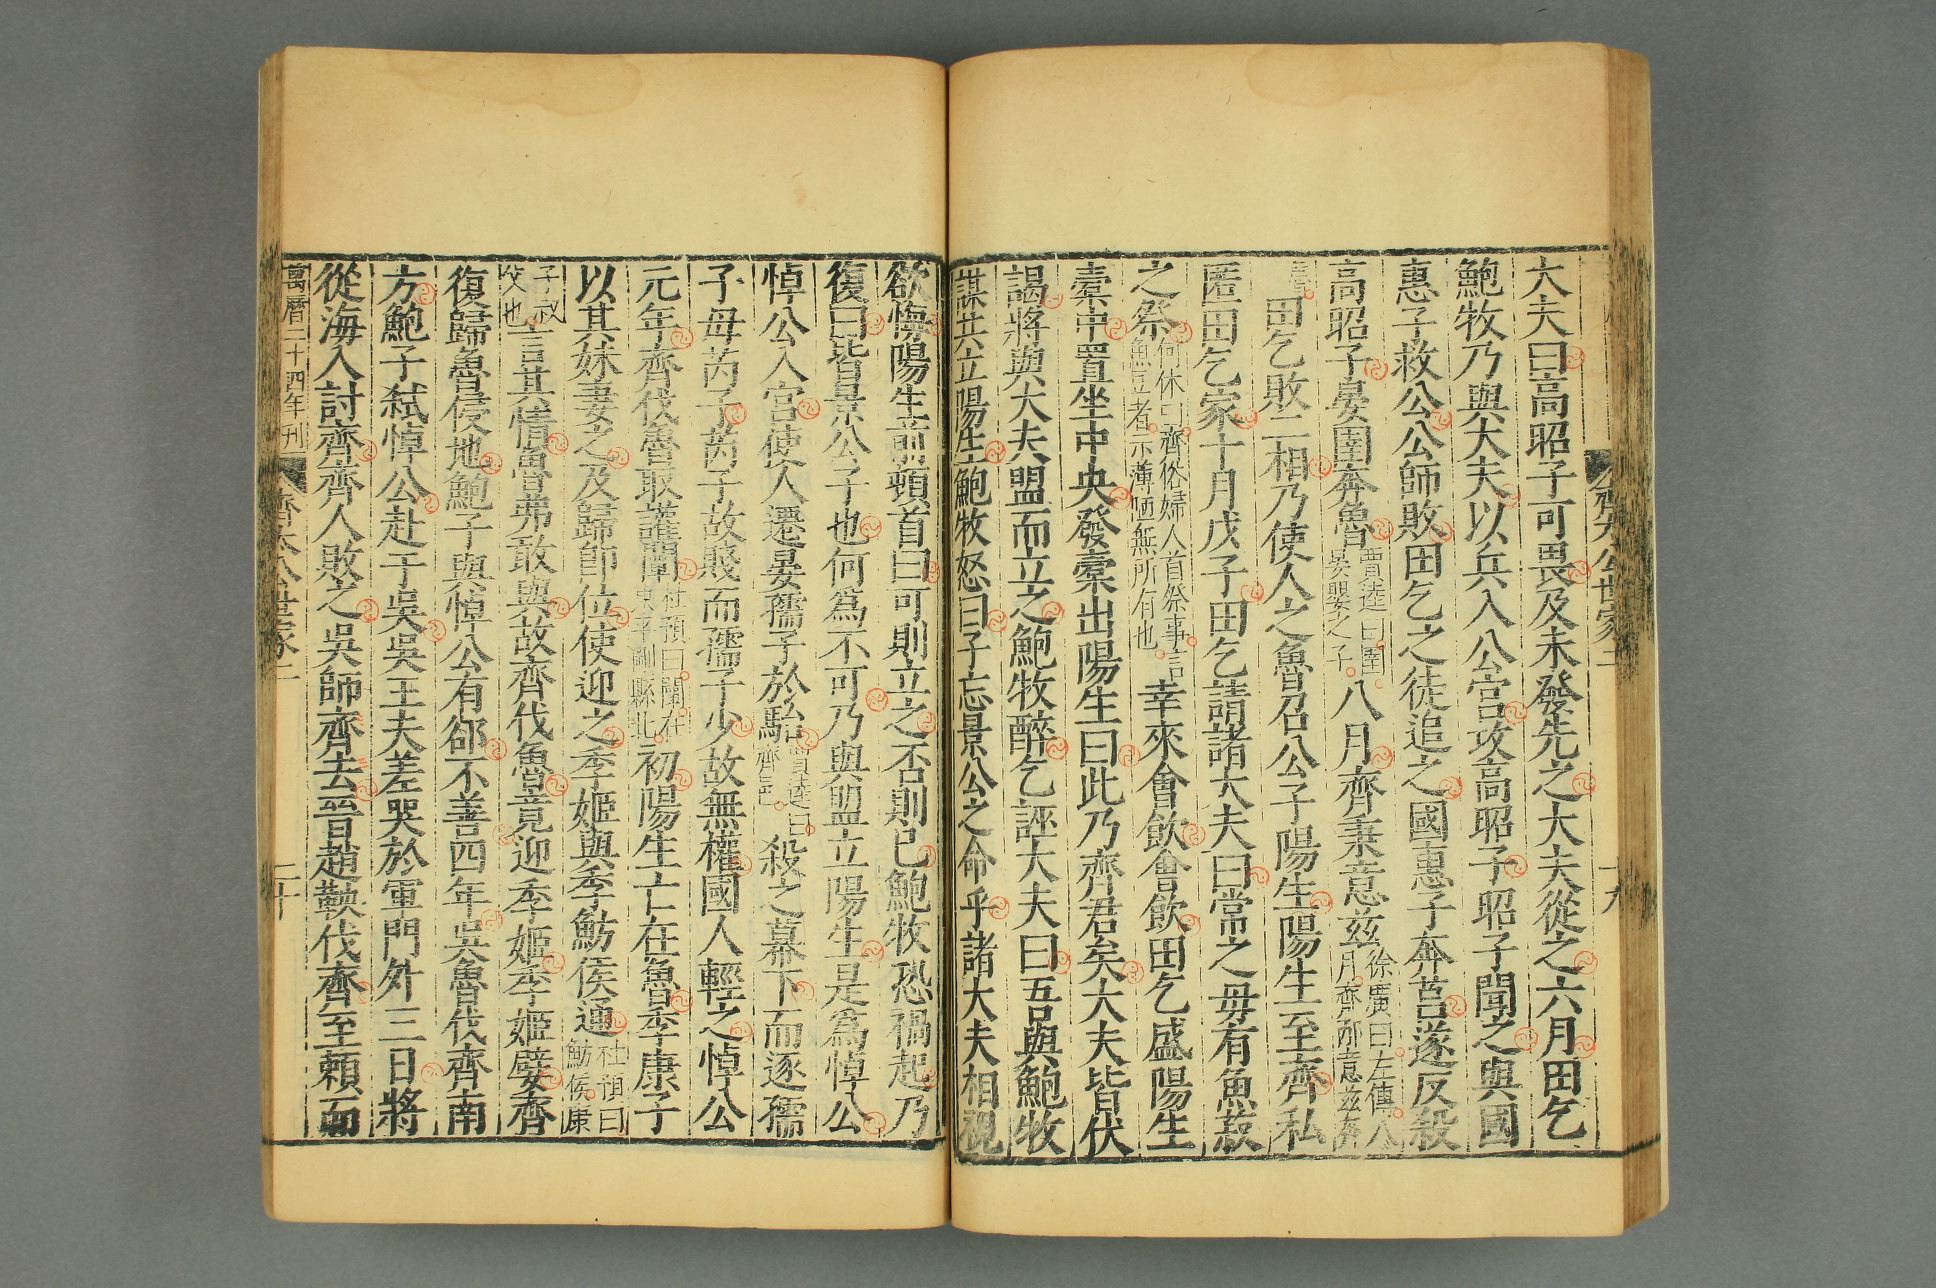 齊太公世家二
十九
大夫曰高昭子可畏及未發先之大夫從之六月田乞
鮑牧乃與大夫以兵入公宮攻高昭子昭子聞之與國
惠子救公公師敗田乞之徒追之國惠子奔莒遂反殺
高昭子晏圉奔魯賈逵曰圉晏嬰之子八月齊秉意兹徐廣曰左傳八月齊邴意兹奔
魯田乞敗二相乃使人之魯召公子陽生陽生至齊私
匿田乞家十月戊子田乞請諸大夫曰常之母有魚菽
之祭何休曰齊俗婦人首祭事言魚豆者示薄陋無所有也幸來會飲會飲田乞盛陽生
橐中置坐中央發橐出陽生曰此乃齊君矣大夫皆伏
謁將與大夫盟而立之鮑牧醉乞誣大夫曰吾與鮑牧
謀共立陽生鮑牧怒曰子忘景公之命乎諸大夫相視
欲悔陽生前頓首曰可則立之否則已鮑牧恐禍起乃
復曰皆景公子也何爲不可乃與盟立陽生是爲悼公
悼公入宮使人遷晏孺子於駘賈逵曰齊邑殺之幕下而逐孺
子母芮子芮子故賤而孺子少故無權國人輕之悼公
元年齊伐魯取讙闡杜預曰闡在東平剛縣北初陽生亡在魯季康子
以其妹妻之及歸即位使迎之季姬與季魴侯通杜預曰魴侯康
子叔父也言其情魯弗敢與故齊伐魯竟迎季姬季姬嬖齊
復歸魯侵地鮑子與悼公有郤不善四年吳魯伐齊南
方鮑子弑悼公赴于吳吳王夫差哭於軍門外三日將
從海入討齊齊人敗之吳師齊去晉趙鞅伐齊至賴而
萬曆二十四年刊
齊太公世家二
二十